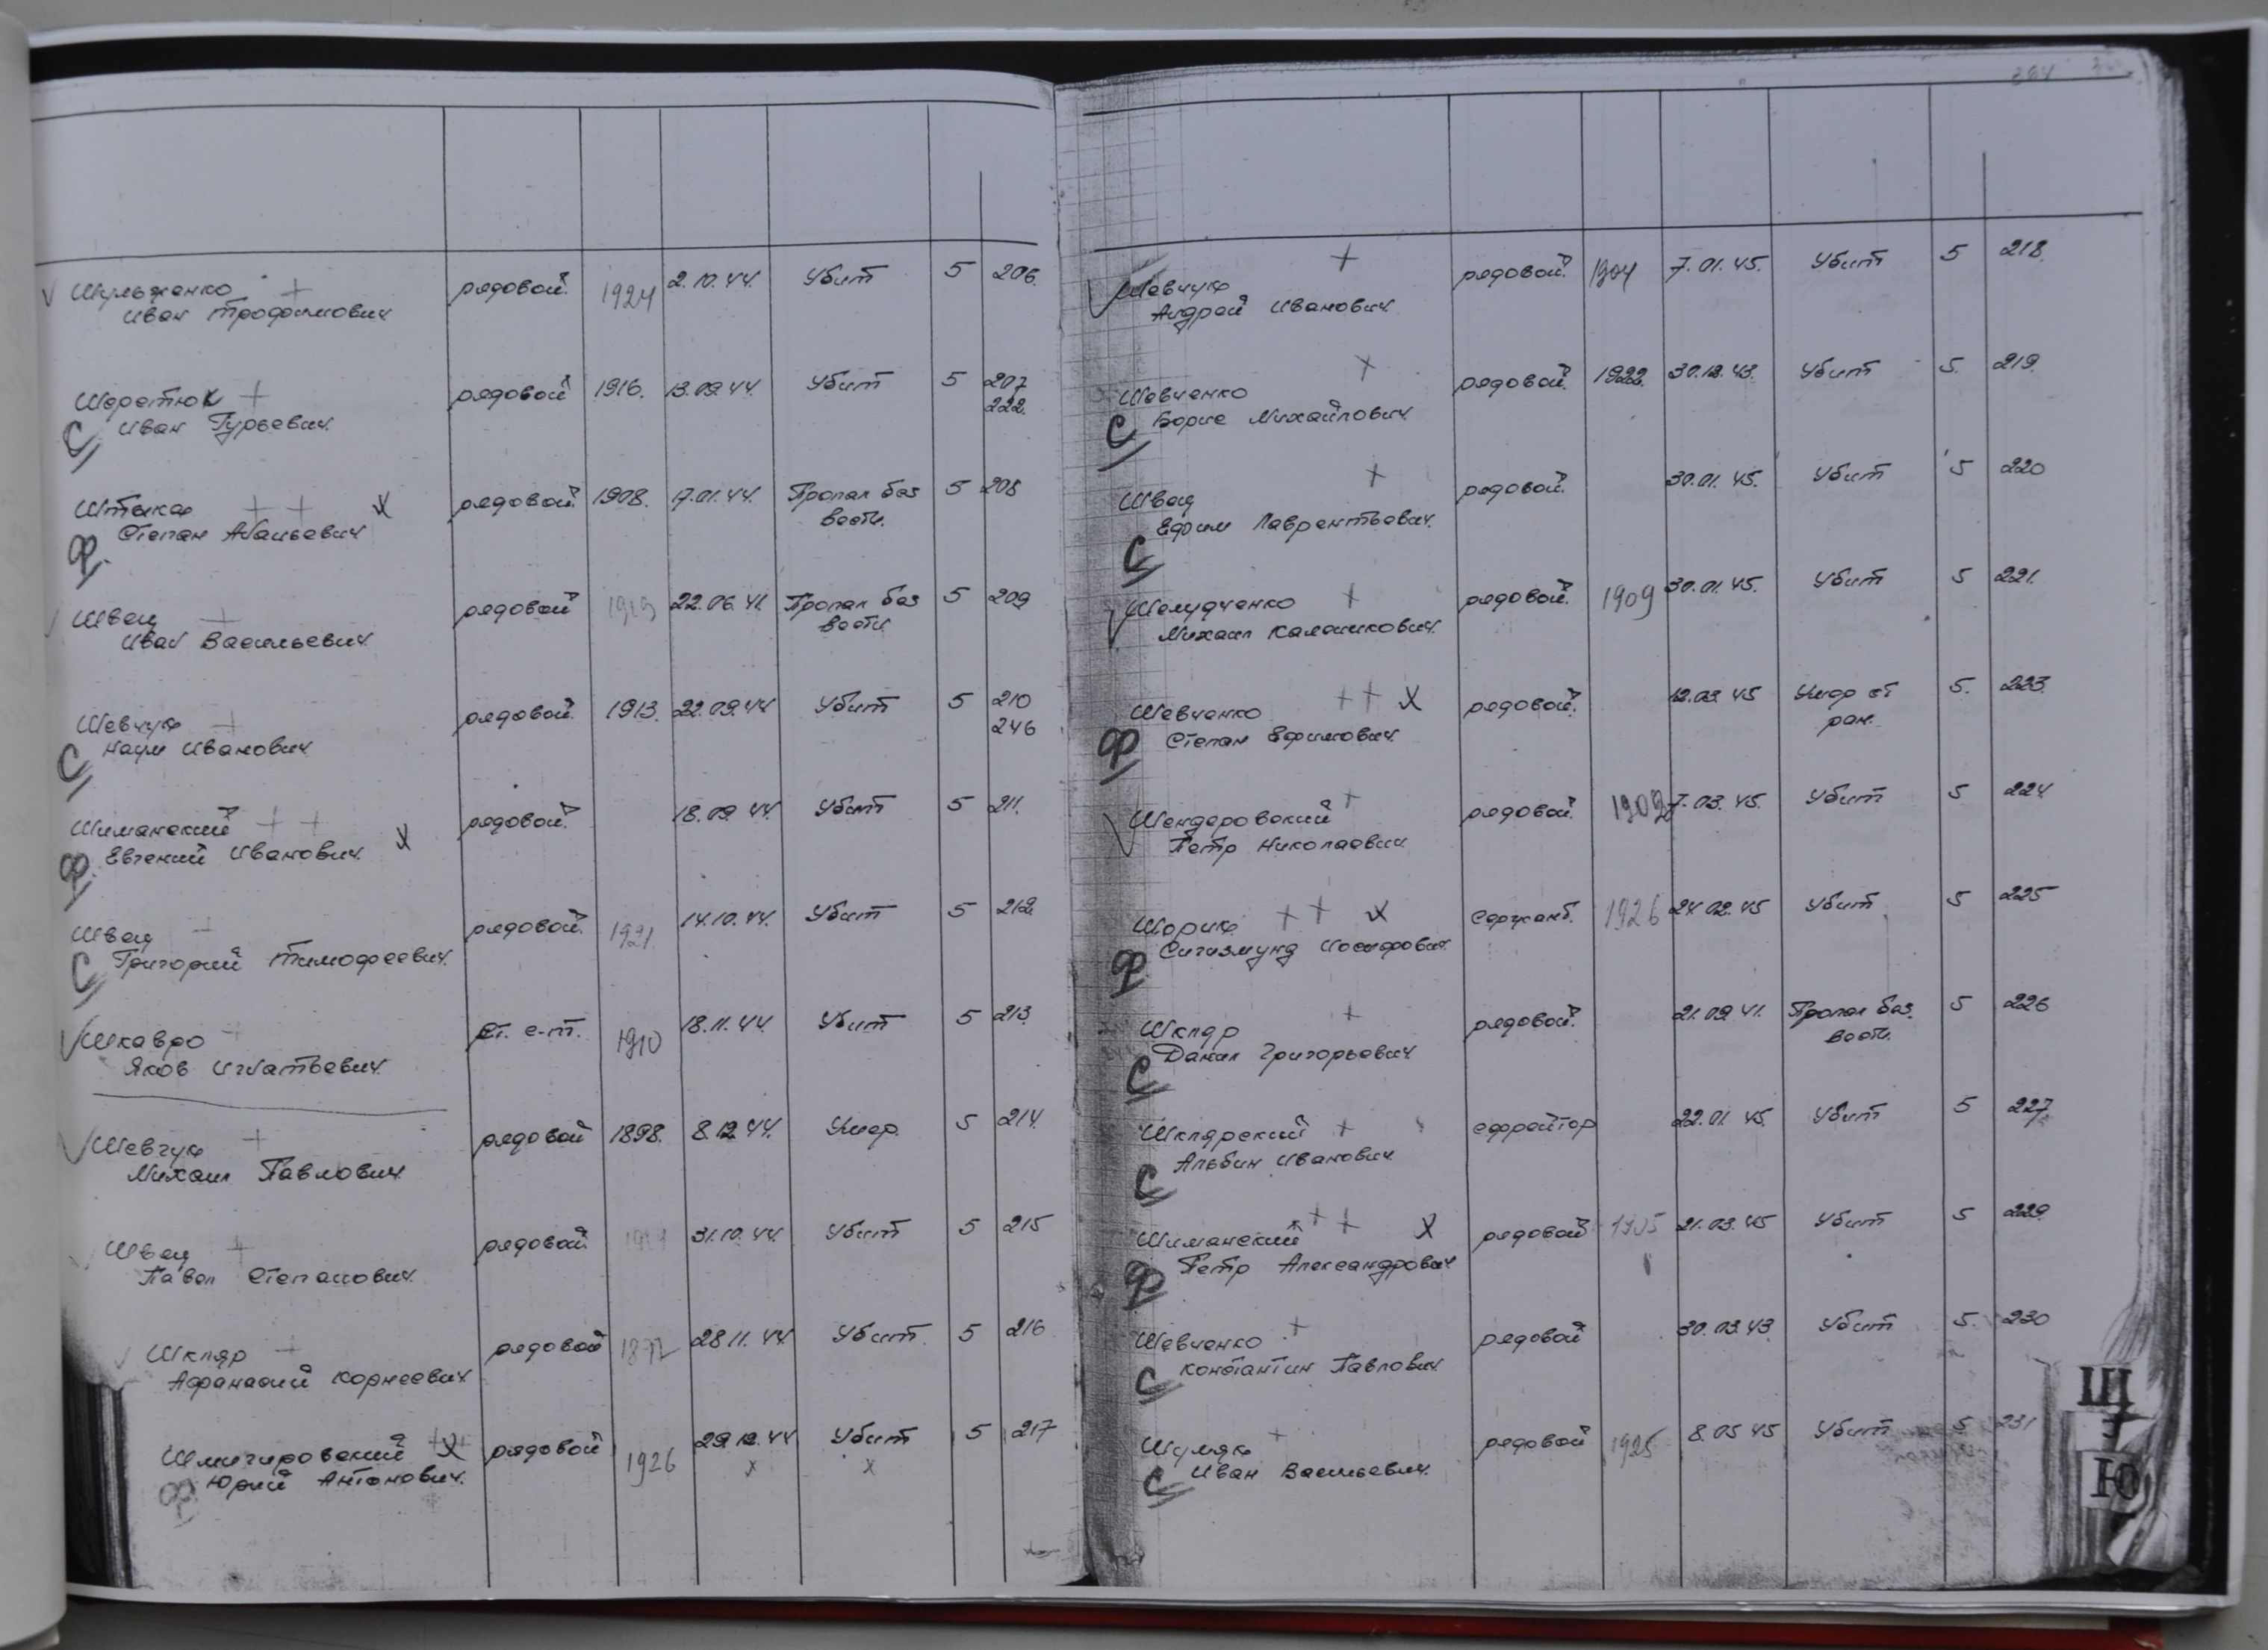 Шульженко рядовой. 1924 2.10.44. Убит 5 206.
Иван Трофимович
Шеретюк рядовой 1916. 13.09.44. Убит 5 207
Иван Гурьевич 222.
С
Штыка рядовой. 1908. 17.01.44. Пропал без 5 208
Степан вести.
Ф.
Швец рядовой 22.06.41. Пропал без 5 209
Иван Васильевич вести
Шевчук рядовой. 1913. 22.09.44 Убит 5 210
Наум Иванович 246
С
Шиманский рядовой. 18.09.44. Убит 5 211.
Евгений Иванович
Ф.
Швец рядовой. 1921. 14.10.44. Убит 5 212
Григорий Тимофеевич
С
Шкавро ст. с-т. 1910 18.11.44. Убит 5 213.
Яков Игнатьевич
Шевчук рядовой 1898. 8.12.44. Умер. 5 214.
Михаил Павлович
Швец рядовой 31.10.44. Убит 5 215
Павел Степанович
Шкляр рядовой 28.11.44 Убит. 5 216
Афанасий Корнеевич
Шмигировский рядовой 1926 29.12.44 Убит 5 217
Юрий Антонович.
Ф.
Шевчук рядовой. 1904 7.01.45. Убит 5 218.
Андрей Иванович
Шевченко рядовой. 1922. 30.12.43. Убит 5. 219.
Борис Михайлович
С
Швец рядовой. 30.01.45. Убит 5 220
Ефим Лаврентьевич.
С
Шелудченко рядовой. 1909 30.01.45. Убит 5 221.
Михаил Калиникович.
Шевченко рядовой. 12.03.45 Умер от 5. 223.
Степан Ефимович ран.
Ф
Шендеровский рядовой. 7.03.45. Убит 5 224
Петр Николаевич
Шорик сержант. 1926 24.02.45 Убит 5 225
Сигизмунд Иосифович
Ф
Шкляр рядовой. 21.09.41. Пропал без 5 226
Данил Григорьевич вести.
С
Шклярский ефрейтор 22.01.45. Убит 5 227
Альбин Иванович
С
Шиманский рядовой 1905 21.03.45 Убит 5 229
Петр Александрович
Ф
Шевченко рядовой 30.03.43 Убит 5. 230
Константин Павлович
С
Шумяк рядовой 1925 8.05.45 Убит 5 231
Иван Васильевич.
С
Щ
Э
Ю